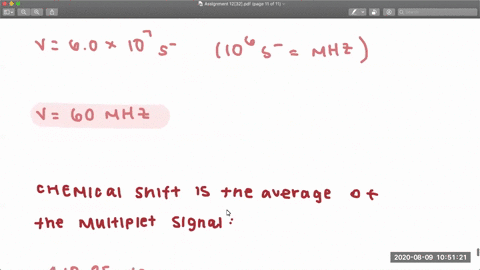 Assignment 12(32).pdf (page 11 of 11)
V = 6.0 × 10⁷ s⁻ (10⁶ s⁻ = MHz)
V = 60 MHz
CHEMICAL Shift is the average of
the Multiplet Signal:
2020-08-09 10:51:21